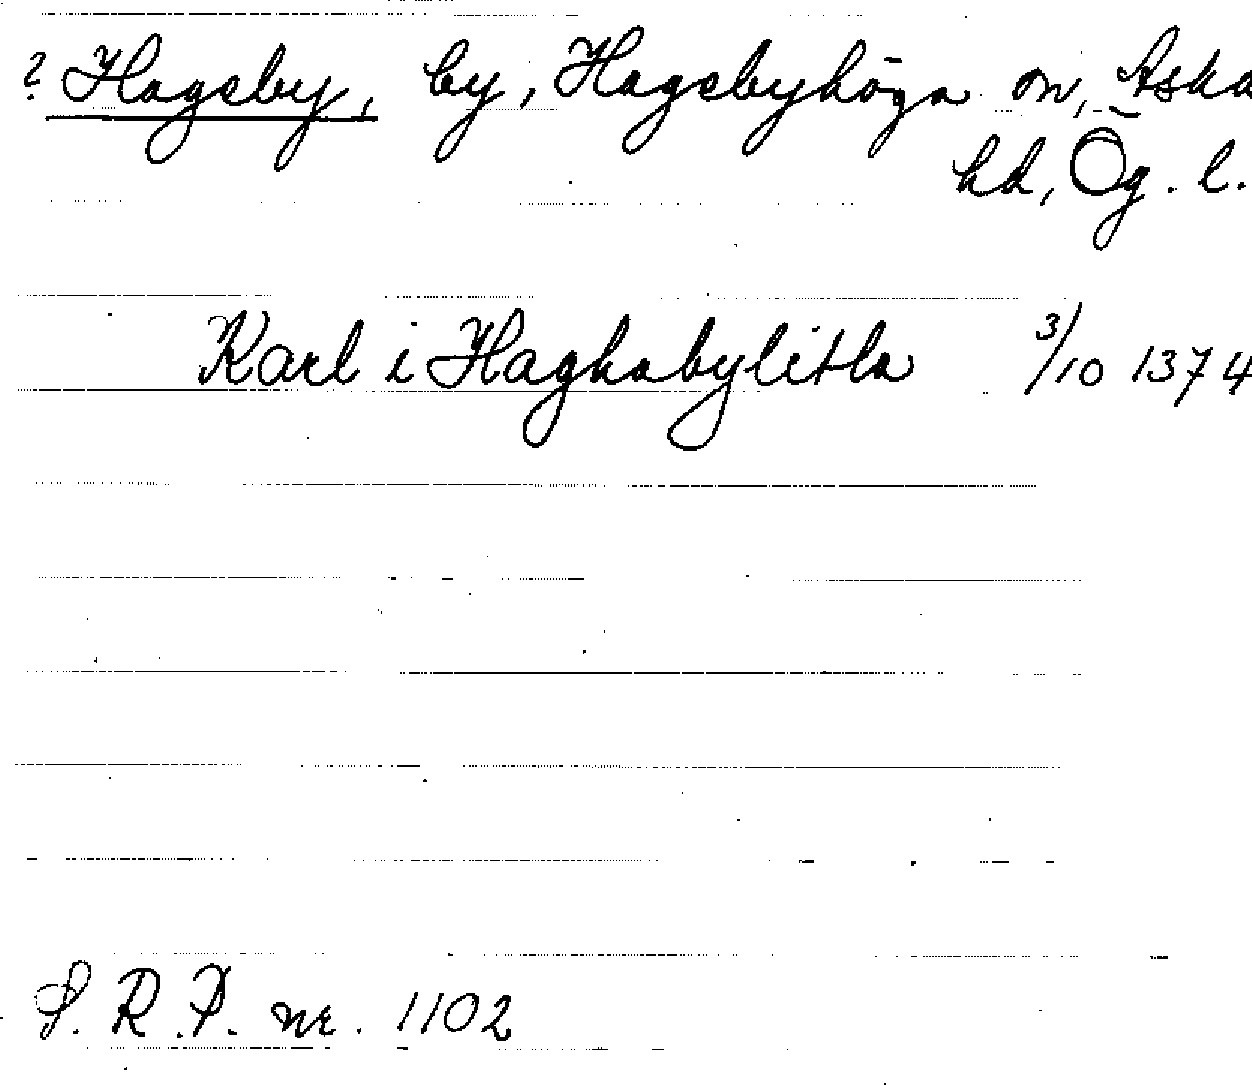 ? Hageby, by, Hagebyhöga sn, Aska
hd, Ög. l.
Karl i Haghabylitla 3/10 1374
S. R. P. nr. 1102